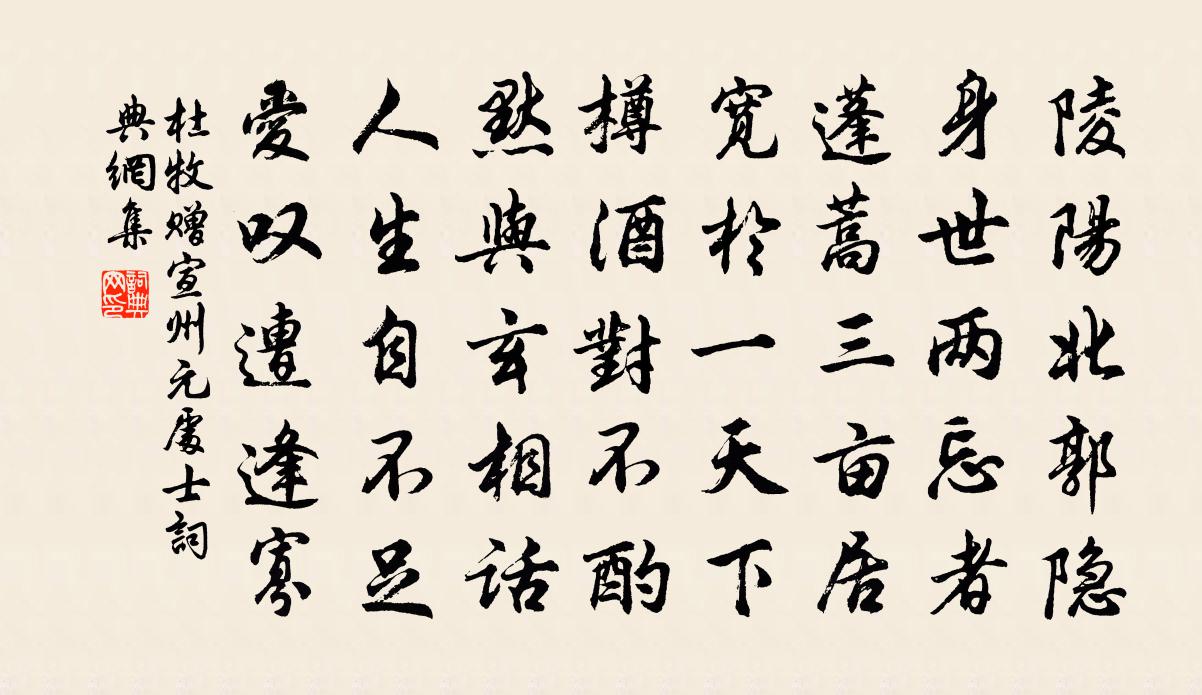 陵陽北郭隐
身世两忘者
蓬蒿三亩居
寛於一天下
樽酒對不酌
黙與玄相話
人生自不足
愛叹遭逢寡
杜牧赠宣州元處士詞
典網集
詞典
网印